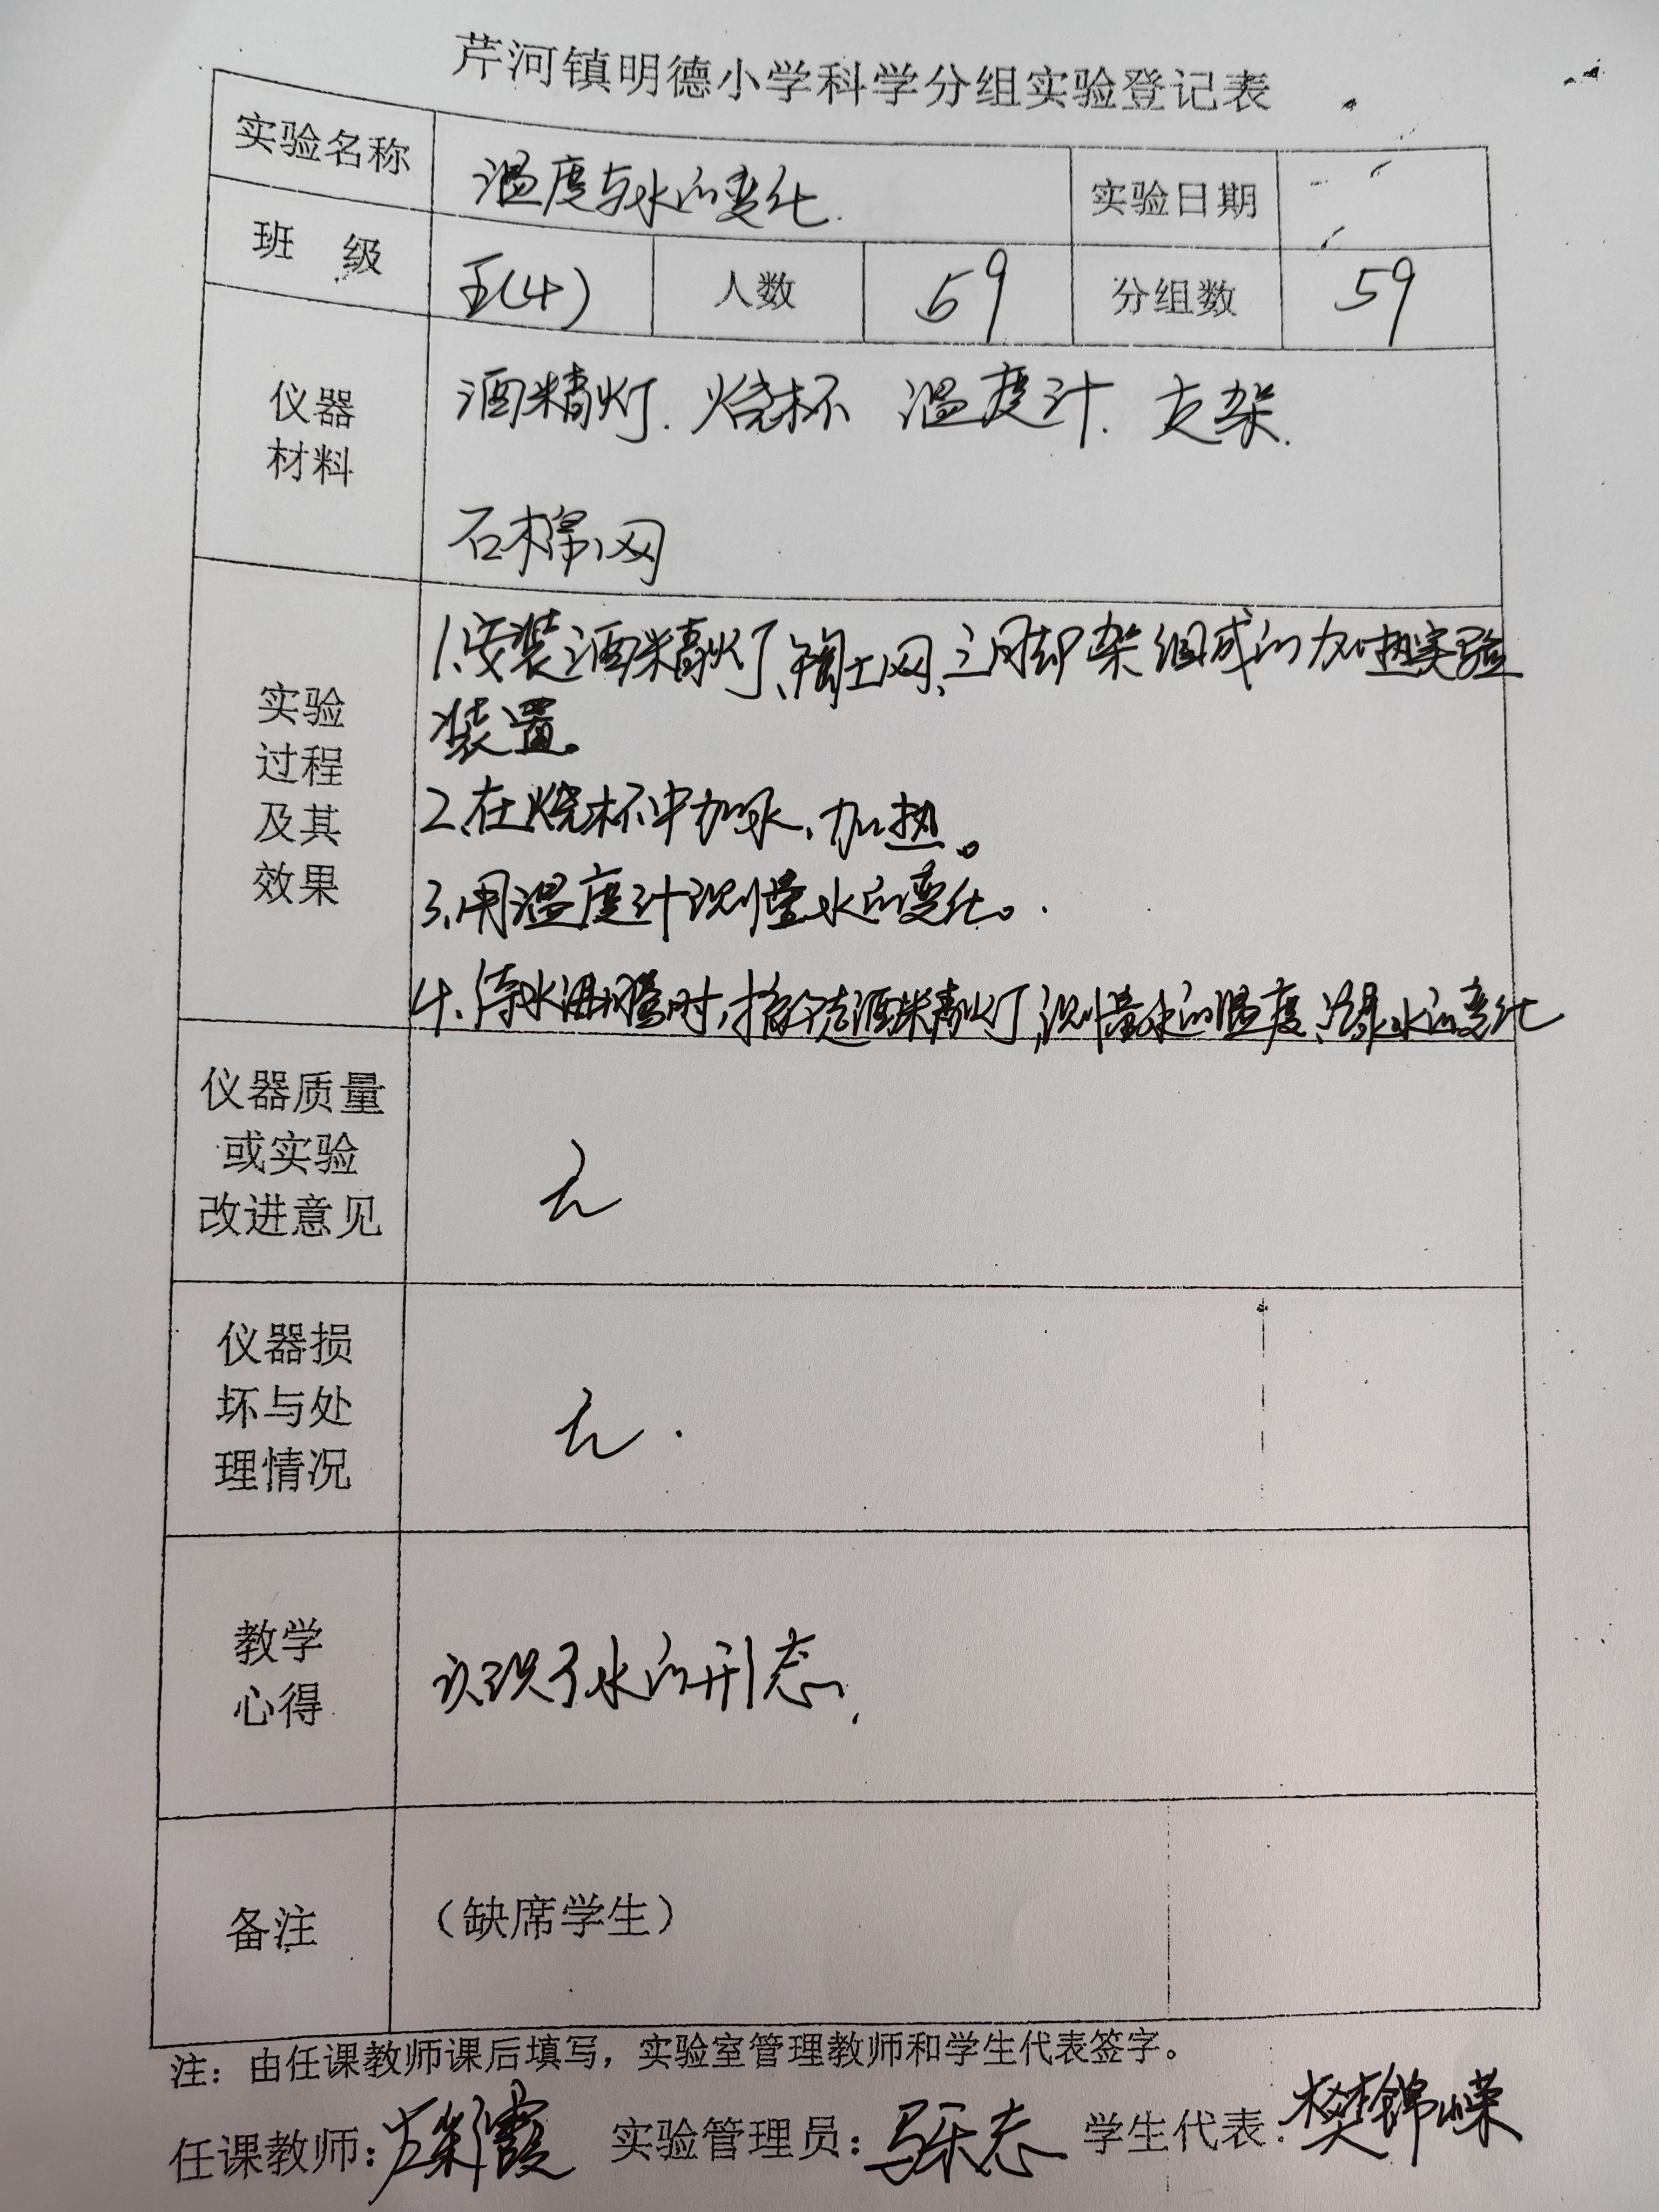 芹河镇明德小学科学分组实验登记表
实验名称 温度与水的变化. 实验日期
班 级 五(4) 人数 59 分组数 59
仪器材料 酒精灯. 烧杯 温度计. 支架.
石棉网
实验过程及其效果
1、安装酒精灯、陶土网、三角脚架组成的加热实验
装置。
2、在烧杯中加水、加热。
3、用温度计测量水的变化。
4、待水沸腾时,移走酒精灯,测量水的温度、水的变化
仪器质量
或实验
改进意见
无
仪器损
坏与处
理情况
无.
教学
心得
认识了水的形态.
备注 (缺席学生)
注：由任课教师课后填写，实验室管理教师和学生代表签字。
任课教师： 实验管理员： 学生代表: 樊锦嵘